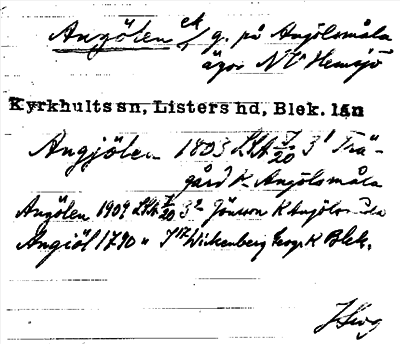 Angölen ek g. på Angölsmåla
ägor NV Hemsjö
Kyrkhults sn, Listers hd, Blek. län
Angjölen 1803 LSA 7/20 3¹ Trä-
gård K Angölsmåla
Angölen 1909 LSA 7/20 3² Jönsson K Angölsmåla
Angiöl 1790 Wickenberg K Blek.